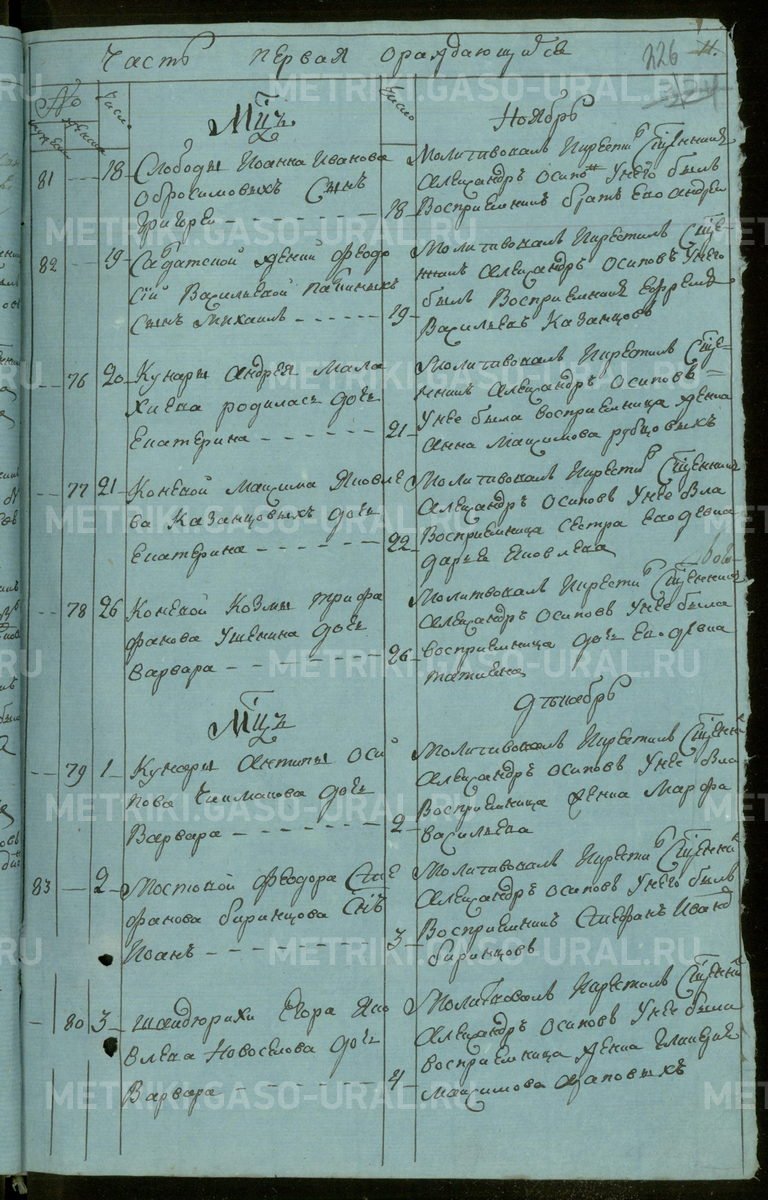 Часть первая ораждающихся
226
№
число
число
Мцъ
Ноябрь
81 - - - 18 Слободы Иоанна Иванова
Обросимовыхъ Сынъ
Григорей - - - - - -
18 Молитвовалъ икрести Сщенникъ
Александръ Осипо Унего былъ
Восприемникъ братъ Его Андрей
82 - - - 19 феодо
сій Васильевой
Сынъ Михаилъ - - - - - -
19 Молитвовалъ икрестилъ Сще-
нникъ Александръ Осиповъ Унего
былъ Восприемникъ Ефремъ
Васильевъ Казанцовъ
- - 76 20 Кунары Андрея Мала
хиева родилась дочь
Екатерина - - - - - -
21 Молитвовалъ икрестилъ Сще-
нникъ Александръ Осиповъ
Унее была восприемница девка
Анна Максимова рубцовыхъ
- - 77 21 Коневой Максима Яковле
ва Казанцовыхъ дочь
Екатерина - - - - - -
22 Молитвовалъ икрести Сщенникъ
Александръ Осиповъ Унее бла
Восприемница Сестра Ево девка
дарья Яковлева
- - 78 26 Коневой Козмы трифа
фанова Ушенина дочь
варвара - - - - - -
26 Молитвовалъ икрести Сщенникъ
Александръ Осиповъ Унее была
восприемница дочь Ево девка
татиана
Мцъ
декабрь
- - 79 1 Кунары Антипы Оси
пова дочь
Варвара - - - - - -
2 Молитвовалъ икрестилъ Сщенни
Александръ Осиповъ Унее бла
Восприемница девка Марфа
васильева
83 - - 2 Мостовой Феодора Сте
фанова биринцова Снъ
Иоанъ - - - - - -
3 Молитвовалъ икрести Сщенни
Александръ Осиповъ Унего былъ
Восприемникъ Стефанъ Иванов
биринцовъ
- 80 3 шайдюрихи Егора Яко
влева Новоселова дочь
Варвара - - - - - -
4 Молитвовалъ икрестилъ Сщенни
Александръ Осиповъ Унее была
восприемница девка
Максимова
METRIKI.GASO-URAL.RU